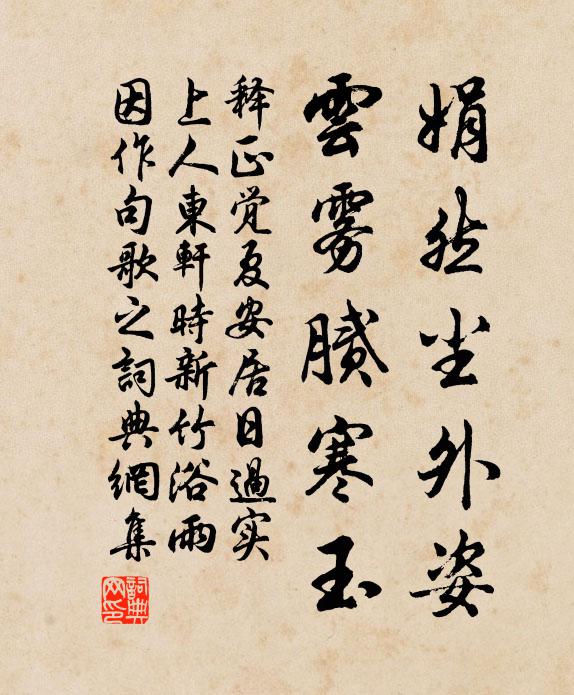 娟然尘外姿
雲雾膩寒玉
释正觉夏安居日過实
上人東軒時新竹浴雨
因作句歌之詞典網集
詞典网印